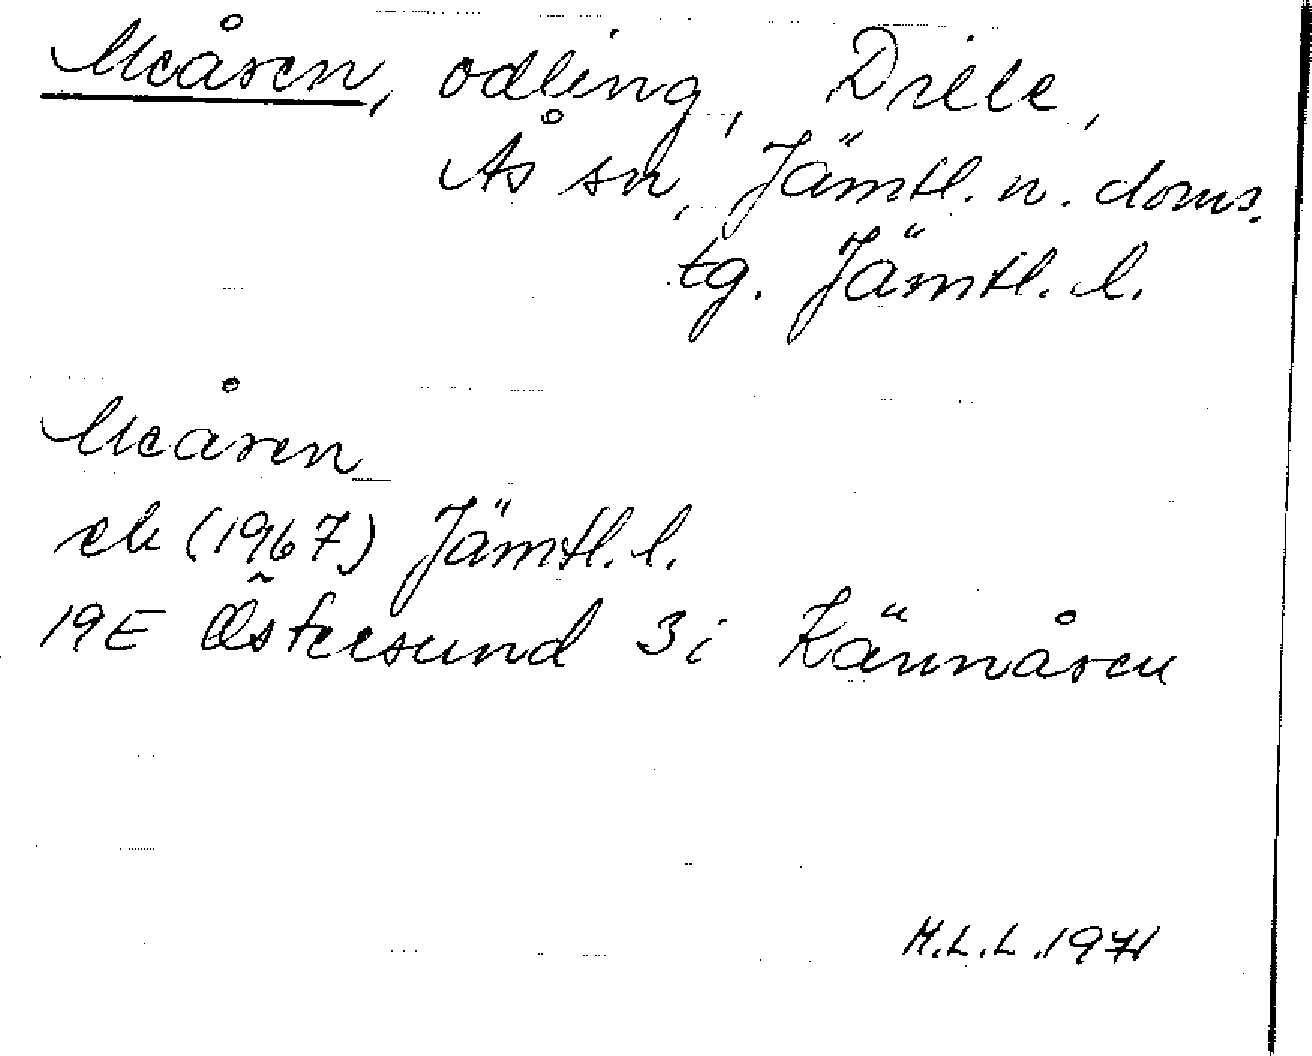 Meåsen, odling, Dille,
Ås sn, Jämtl. n. doms.
tg. Jämtl. l.
Meåsen
ek (1967) Jämtl. l.
19E Östersund 3i Kännåsen
M.L.L. 1971